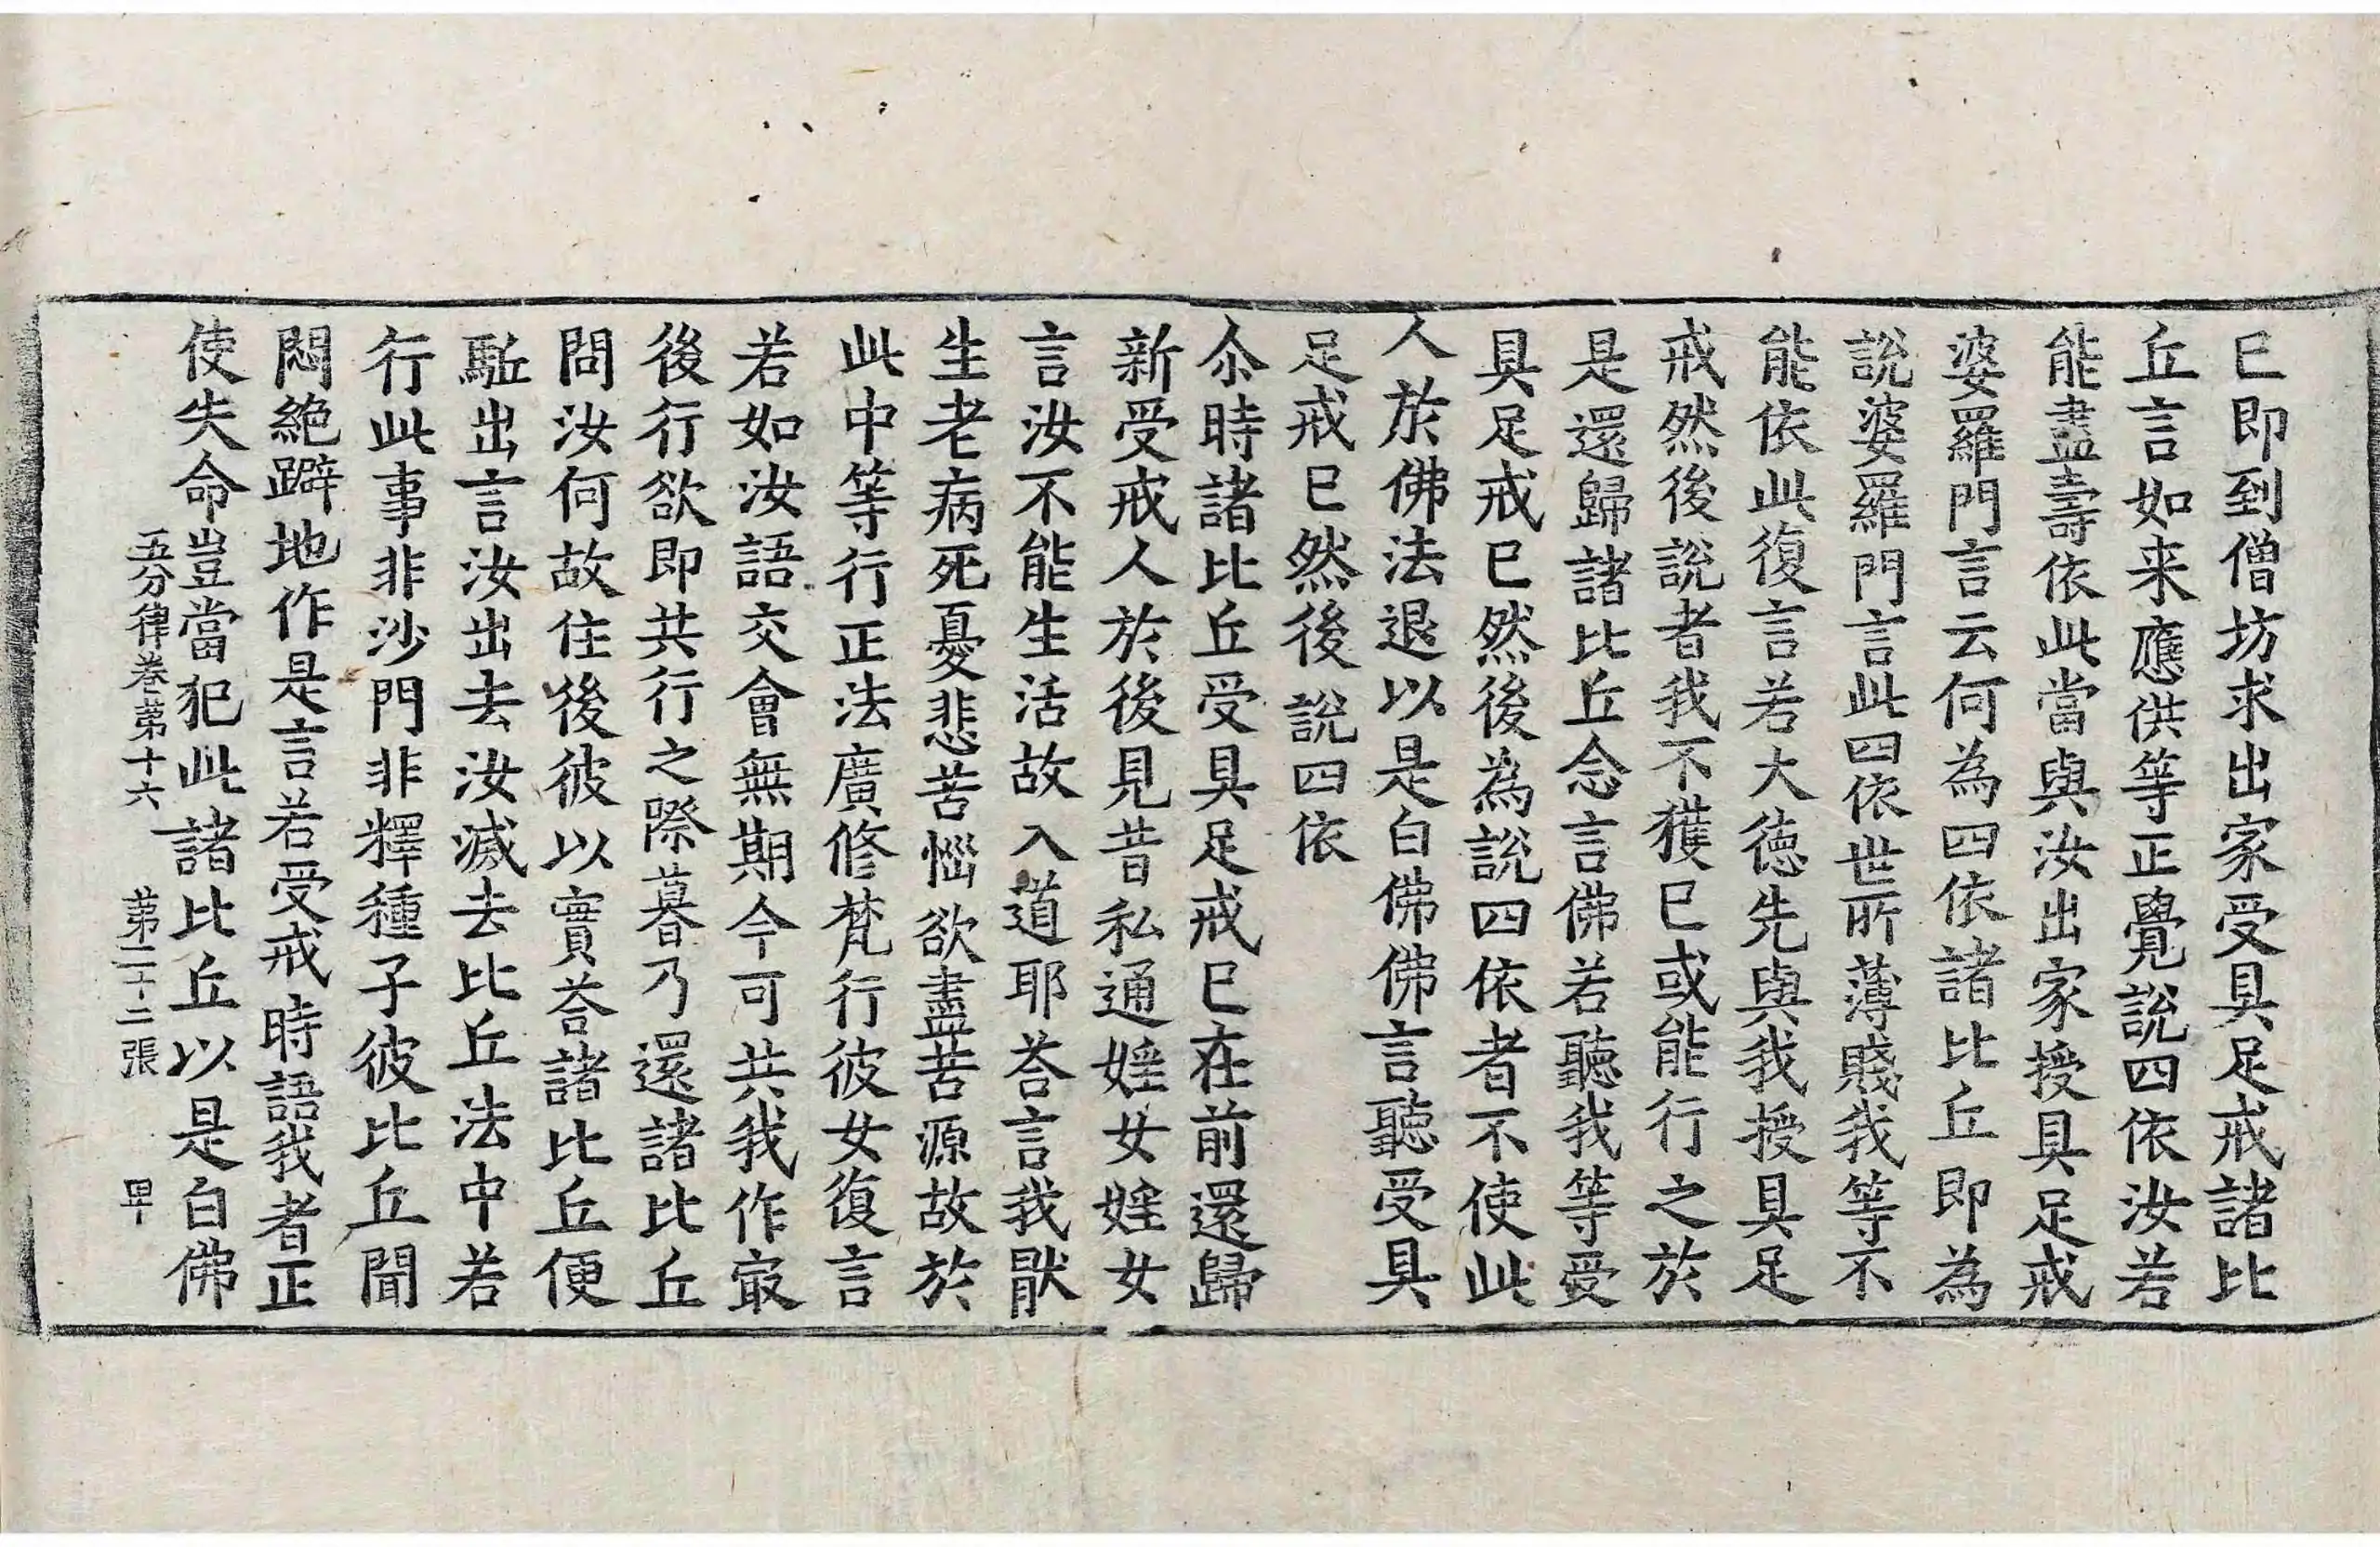 已即到僧坊求出家受具足戒諸比
丘言如来應供等正覺說四依汝若
能盡壽依此當與汝出家授具足戒
婆羅門言云何為四依諸比丘即為
說婆羅門言此四依世所薄賤我等不
能依此復言若大德先與我授具足
戒然後說者我不獲已或能行之於
是還歸諸比丘念言佛若聽我等受
具足戒已然後為說四依者不使此
人於佛法退以是白佛佛言聽受具
足戒已然後說四依
尒時諸比丘受具足戒已在前還歸
新受戒人於後見昔私通婬女婬女
言汝不能生活故入道耶荅言我猒
生老病死憂悲苦惱欲盡苦源故於
此中等行正法廣修梵行彼女復言
若如汝語交會無期今可共我作㝡
後行欲即共行之際暮乃還諸比丘
問汝何故住後彼以實荅諸比丘便
駈出言汝出去汝滅去比丘法中若
行此事非沙門非釋種子彼比丘聞
悶絕躃地作是言若受戒時語我者正
使失命豈當犯此諸比丘以是白佛
五分律卷第十六 第二十二張